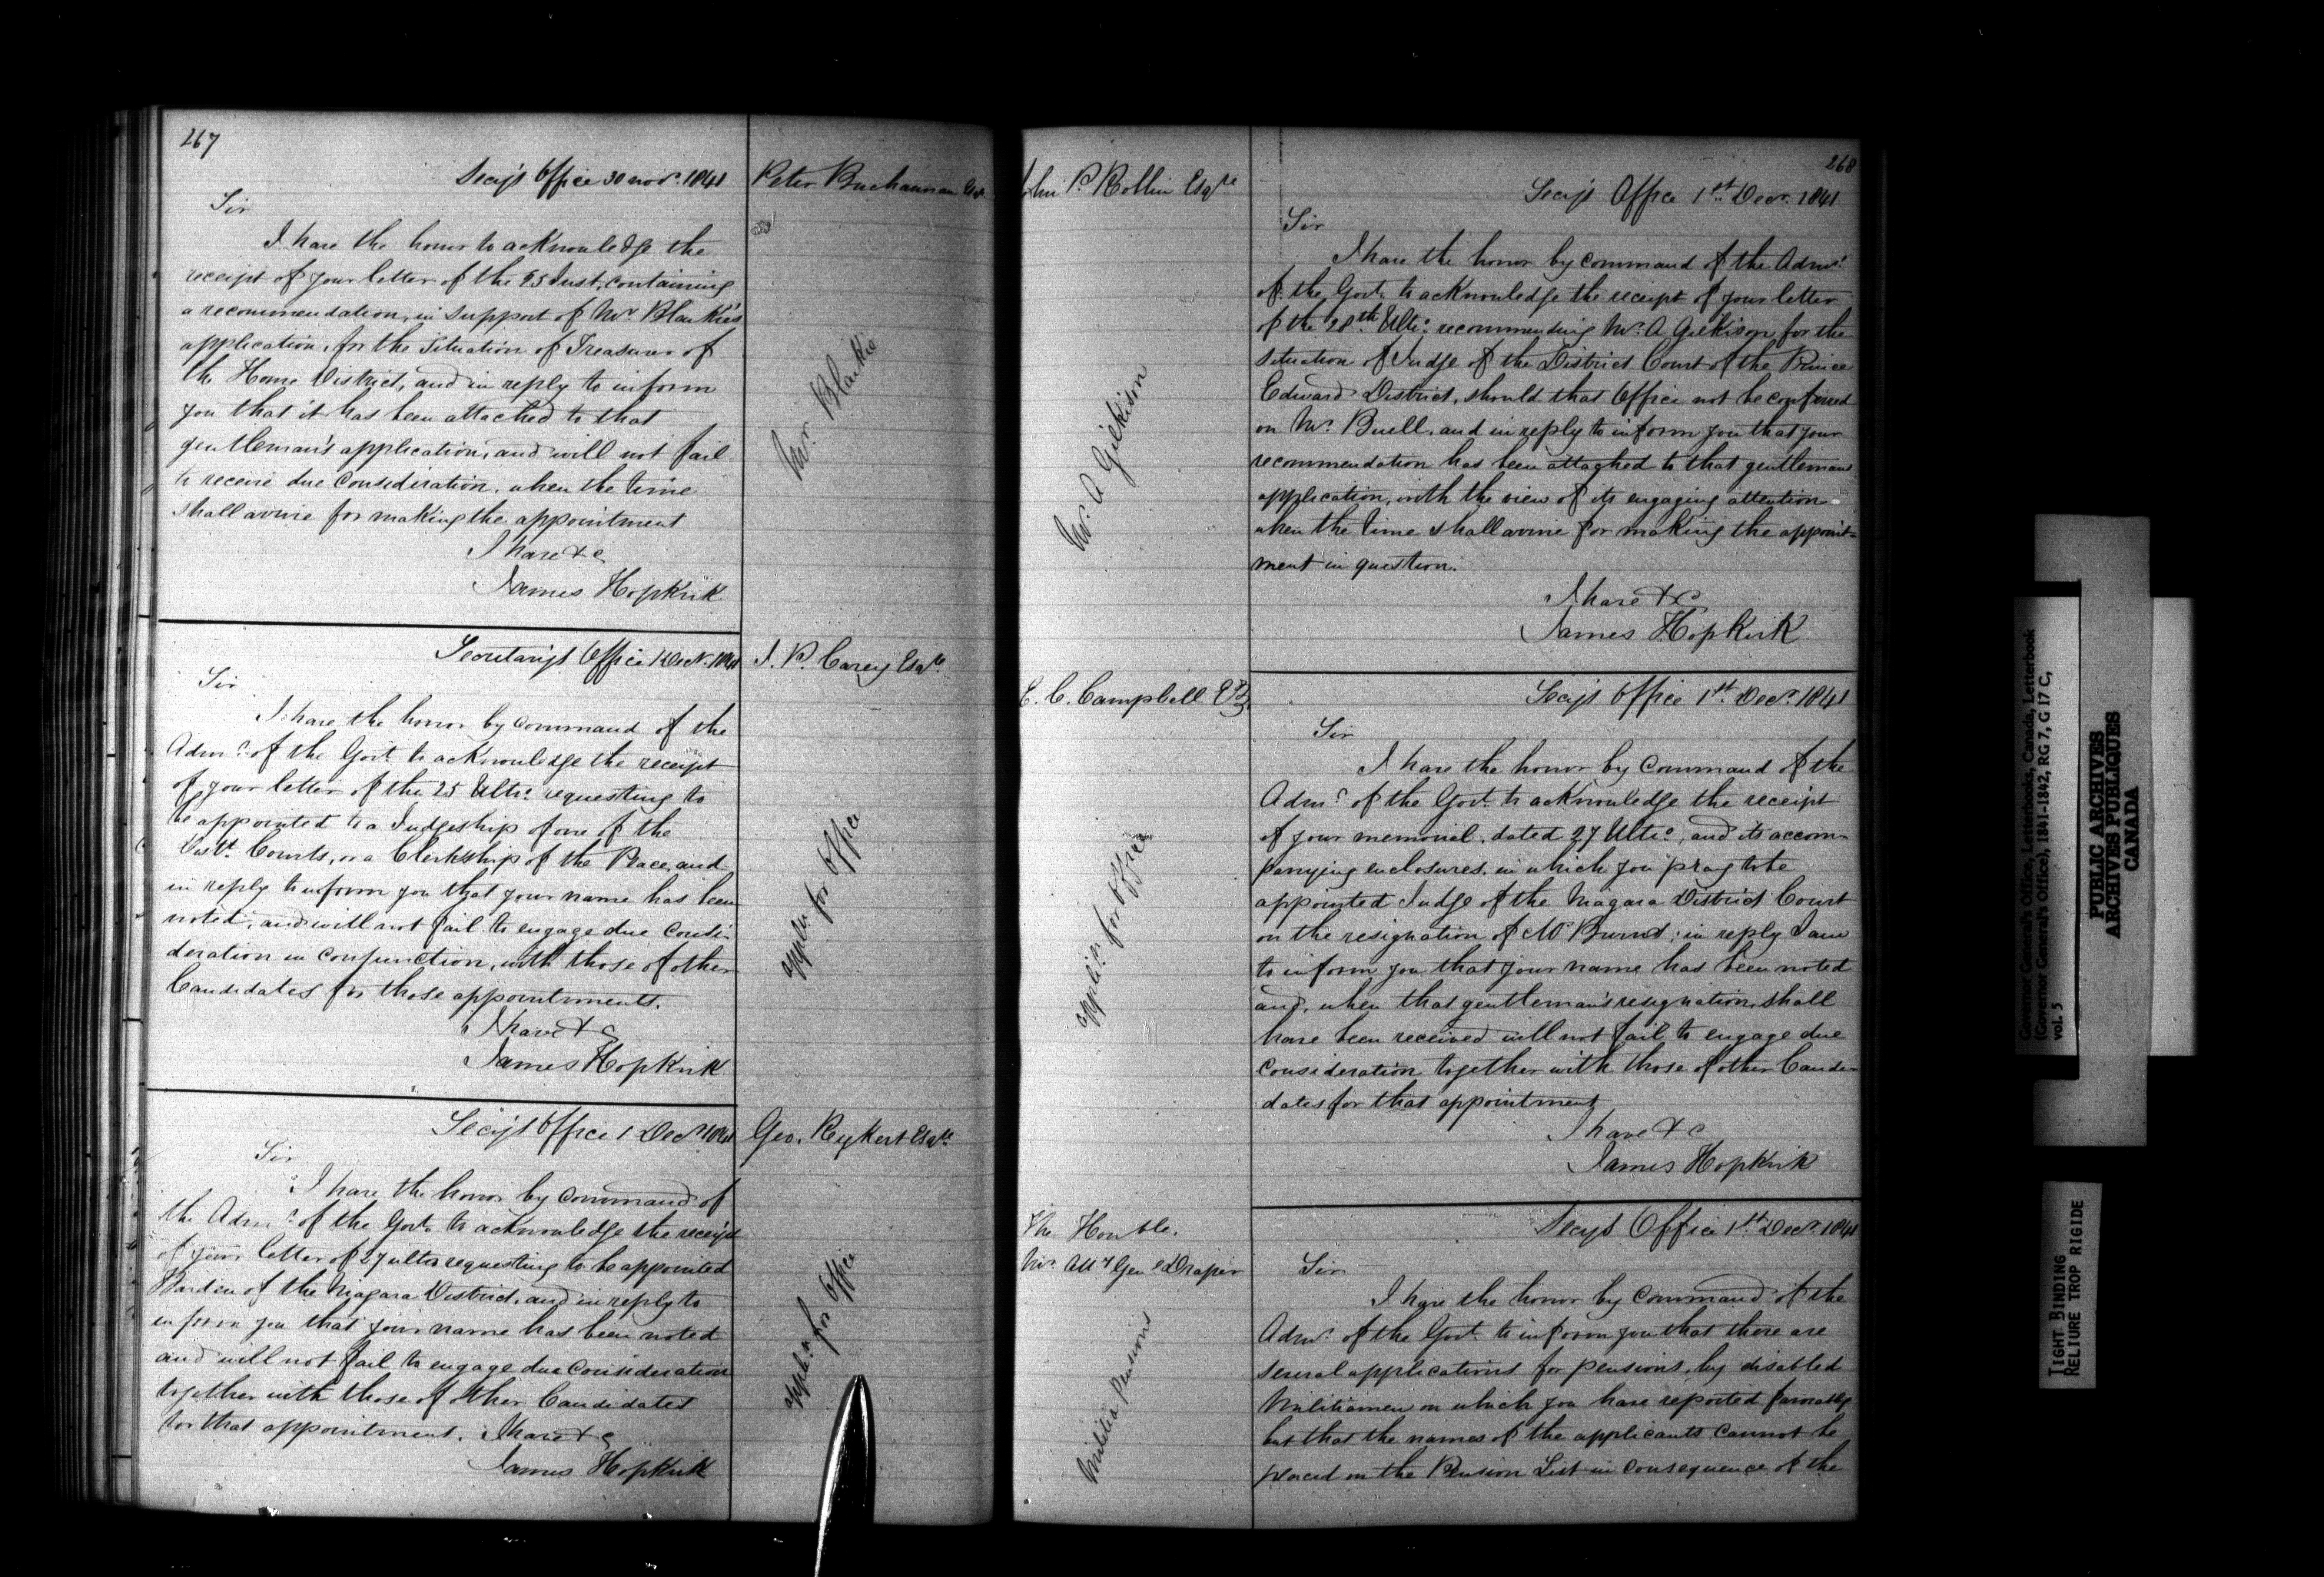 267
Secy's Office 30 Novr. 1841
Peter Buchannan Esqr
Sir
I have the honor to acknowledge the
receipt of your letter of the 25 Inst, containing
a recommendation, in support of Mr Blaikie's
application, for the situation of Treasurer of
the Home District, and in reply to inform
you that it has been attached to that
gentleman's application, and will not fail
to receive due consideration, when the time
shall arrive for making the appointment
I have &c
James Hopkirk
Mr. Blaikie
Secretary's Office 1 Decr. 1841
J. P. Carey Esqre
Sir
I have the honor by command of the
Admr. of the Govt to acknowledge the receipt
of your letter of the 25 Ulto. requesting to
be appointed to a Judgeship of one of the
Distt. Courts, or a Clerkship of the Peace, and
in reply to inform you that your name has been
noted, and will not fail to engage due consi-
deration in conjunction, with those of other
Candidates for those appointments.
I have &c
James Hopkirk
appln for Office
Secy's Office 1 Decr 1841
Geo. Rykert Esqre
Sir
I have the honor by command of
the Admr. of the Govt. to acknowledge the receipt
of your letter of 27 ulto requesting to be appointed
Warden of the Niagara District, and in reply to
inform you that your name has been noted
and will not fail to engage due consideration
together with those of other Candidates
for that appointment. I have &c
James Hopkirk
appln. for Office
268
John P. Roblin Esqre
Secy's Office 1st Decr. 1841
Sir
I have the honor by command of the Admr.
of the Govt. to acknowledge the receipt of your letter
of the 28th Ulto. recommending Mr. A Gilkison, for the
situation of Judge of the District Court of the Prince
Edward District, should that Office not be conferred
on Mr. Buell, and in reply to inform you that your
recommendation has been attached to that gentlemans
application, with the view of its engaging attention
when the time shall arrive for making the appoint-
ment in question.
I have &c
James Hopkirk
Mr. A Gilkison
E. C. Campbell Esq
Secy's Office 1st Decr. 1841
Sir
I have the honor by command of the
Admr. of the Govt. to acknowledge the receipt
of your memorial, dated 27 Ulto., and its accom-
panying enclosures, in which you pray to be
appointed Judge of the Niagara District Court
on the resignation of Mr Burns; in reply I am
to inform you that your name has been noted
and, when that gentleman's resignation, shall
have been received will not fail to engage due
consideration together with those of other Candi-
dates for that appointment
I have &c
James Hopkirk
applicn for Office
The Honble.
Mr. Atty Genl Draper
Secy's Office 1st Decr. 1841
Sir
I have the honor by command of the
Admr. of the Govt. to inform you that there are
several applications for pensions, by disabled
Militiamen on which you have reported favorably
but that the names of the applicants cannot be
placed on the Pension List in consequence of the
Militia Pensions
Governor General's Office, Letterbooks, Canada, Letterbook
(Governor General's Office), 1841-1842, RG 7, G 17 C,
vol. 5
PUBLIC ARCHIVES
ARCHIVES PUBLIQUES
CANADA
TIGHT BINDING
RELIURE TROP RIGIDE